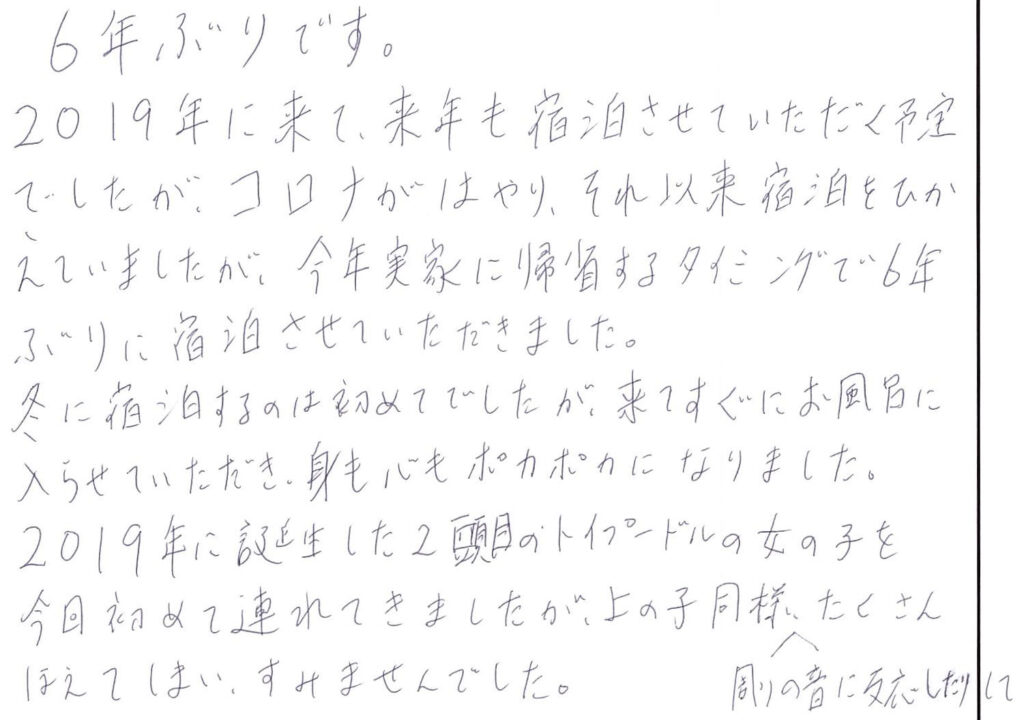 6年ぶりです。
2019年に来て、来年も宿泊させていただく予定
でしたが、コロナがはやり、それ以来宿泊をひか
えていましたが、今年実家に帰省するタイミングで6年
ぶりに宿泊させていただきました。
冬に宿泊するのは初めてでしたが、来てすぐにお風呂に
入らせていただき、身も心もポカポカになりました。
2019年に誕生した2頭目のトイプードルの女の子を
今回初めて連れてきましたが、上の子同様、たくさん
ほえてしまい、すみませんでした。
周りの音に反応したりして